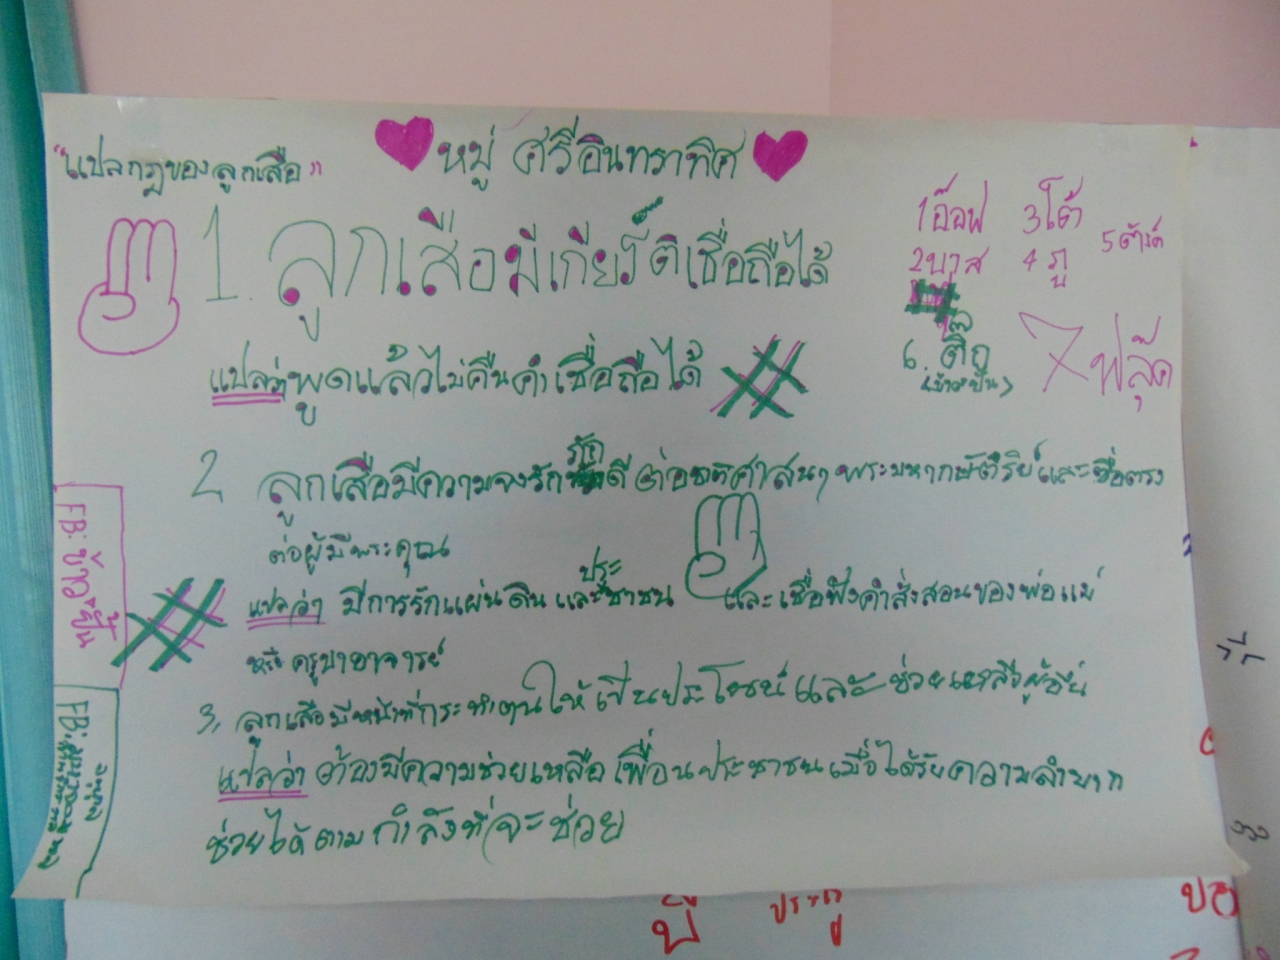 "แปลกฎของลูกเสือ"
หมู่ ศรีอินทราทิศ
1. ลูกเสือมีเกียร์ติเชื่อถือได้
แปลว่าพูดแล้วไม่คืนคำ เชื่อถือได้
1 อ๊อฟ 3 โต้
2 บาส 4 ภู
5 ต้าร์
6. ติ๊ก
7 ฟลุ๊ค
2 ลูกเสือมีความจงรักภักดี ต่อชาติศาสนา พระมหากษัตริย์และซื่อตรง
ต่อผู้มีพระคุณ
แปลว่า มีการรักแผ่นดิน และประชาชน และ เชื่อฟังคำสั่งสอนของพ่อแม่
หรือ ครูบาอาจารย์
3. ลูกเสือมีหน้าที่กระทำตนให้เป็นประโยชน์และ ช่วยเหลือผู้อื่น
แปลว่า ต้องมีความช่วยเหลือ เพื่อนประชาชนเมื่อได้รับความลำบาก
ช่วยได้ตามกำลังที่จะช่วย
FB: ข้าวปั้น
FB: